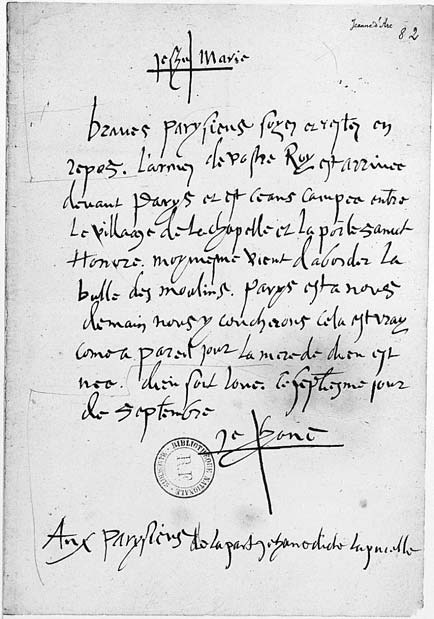 Jeanne d'Arc
82
Jesus Marie
braves parysiens soyez et restez en
repos. L'armee de vostre Roy est arrivee
devant parys et est ceans campee entre
Le village de Lachapelle et La porte Sainct
Honore. moy mesme vient d'aborder La
butte des moulins. parys est a nous
demain nous y coucherons cela est vray
come a pareil jour La mere de dieu est
nee. dieu soit Loue. Ce septiesme jour
de Septembre
BIBLIOTHEQUE NATIONALE
R.F
Aux parysiens de La part Jehane dicte La pucelle